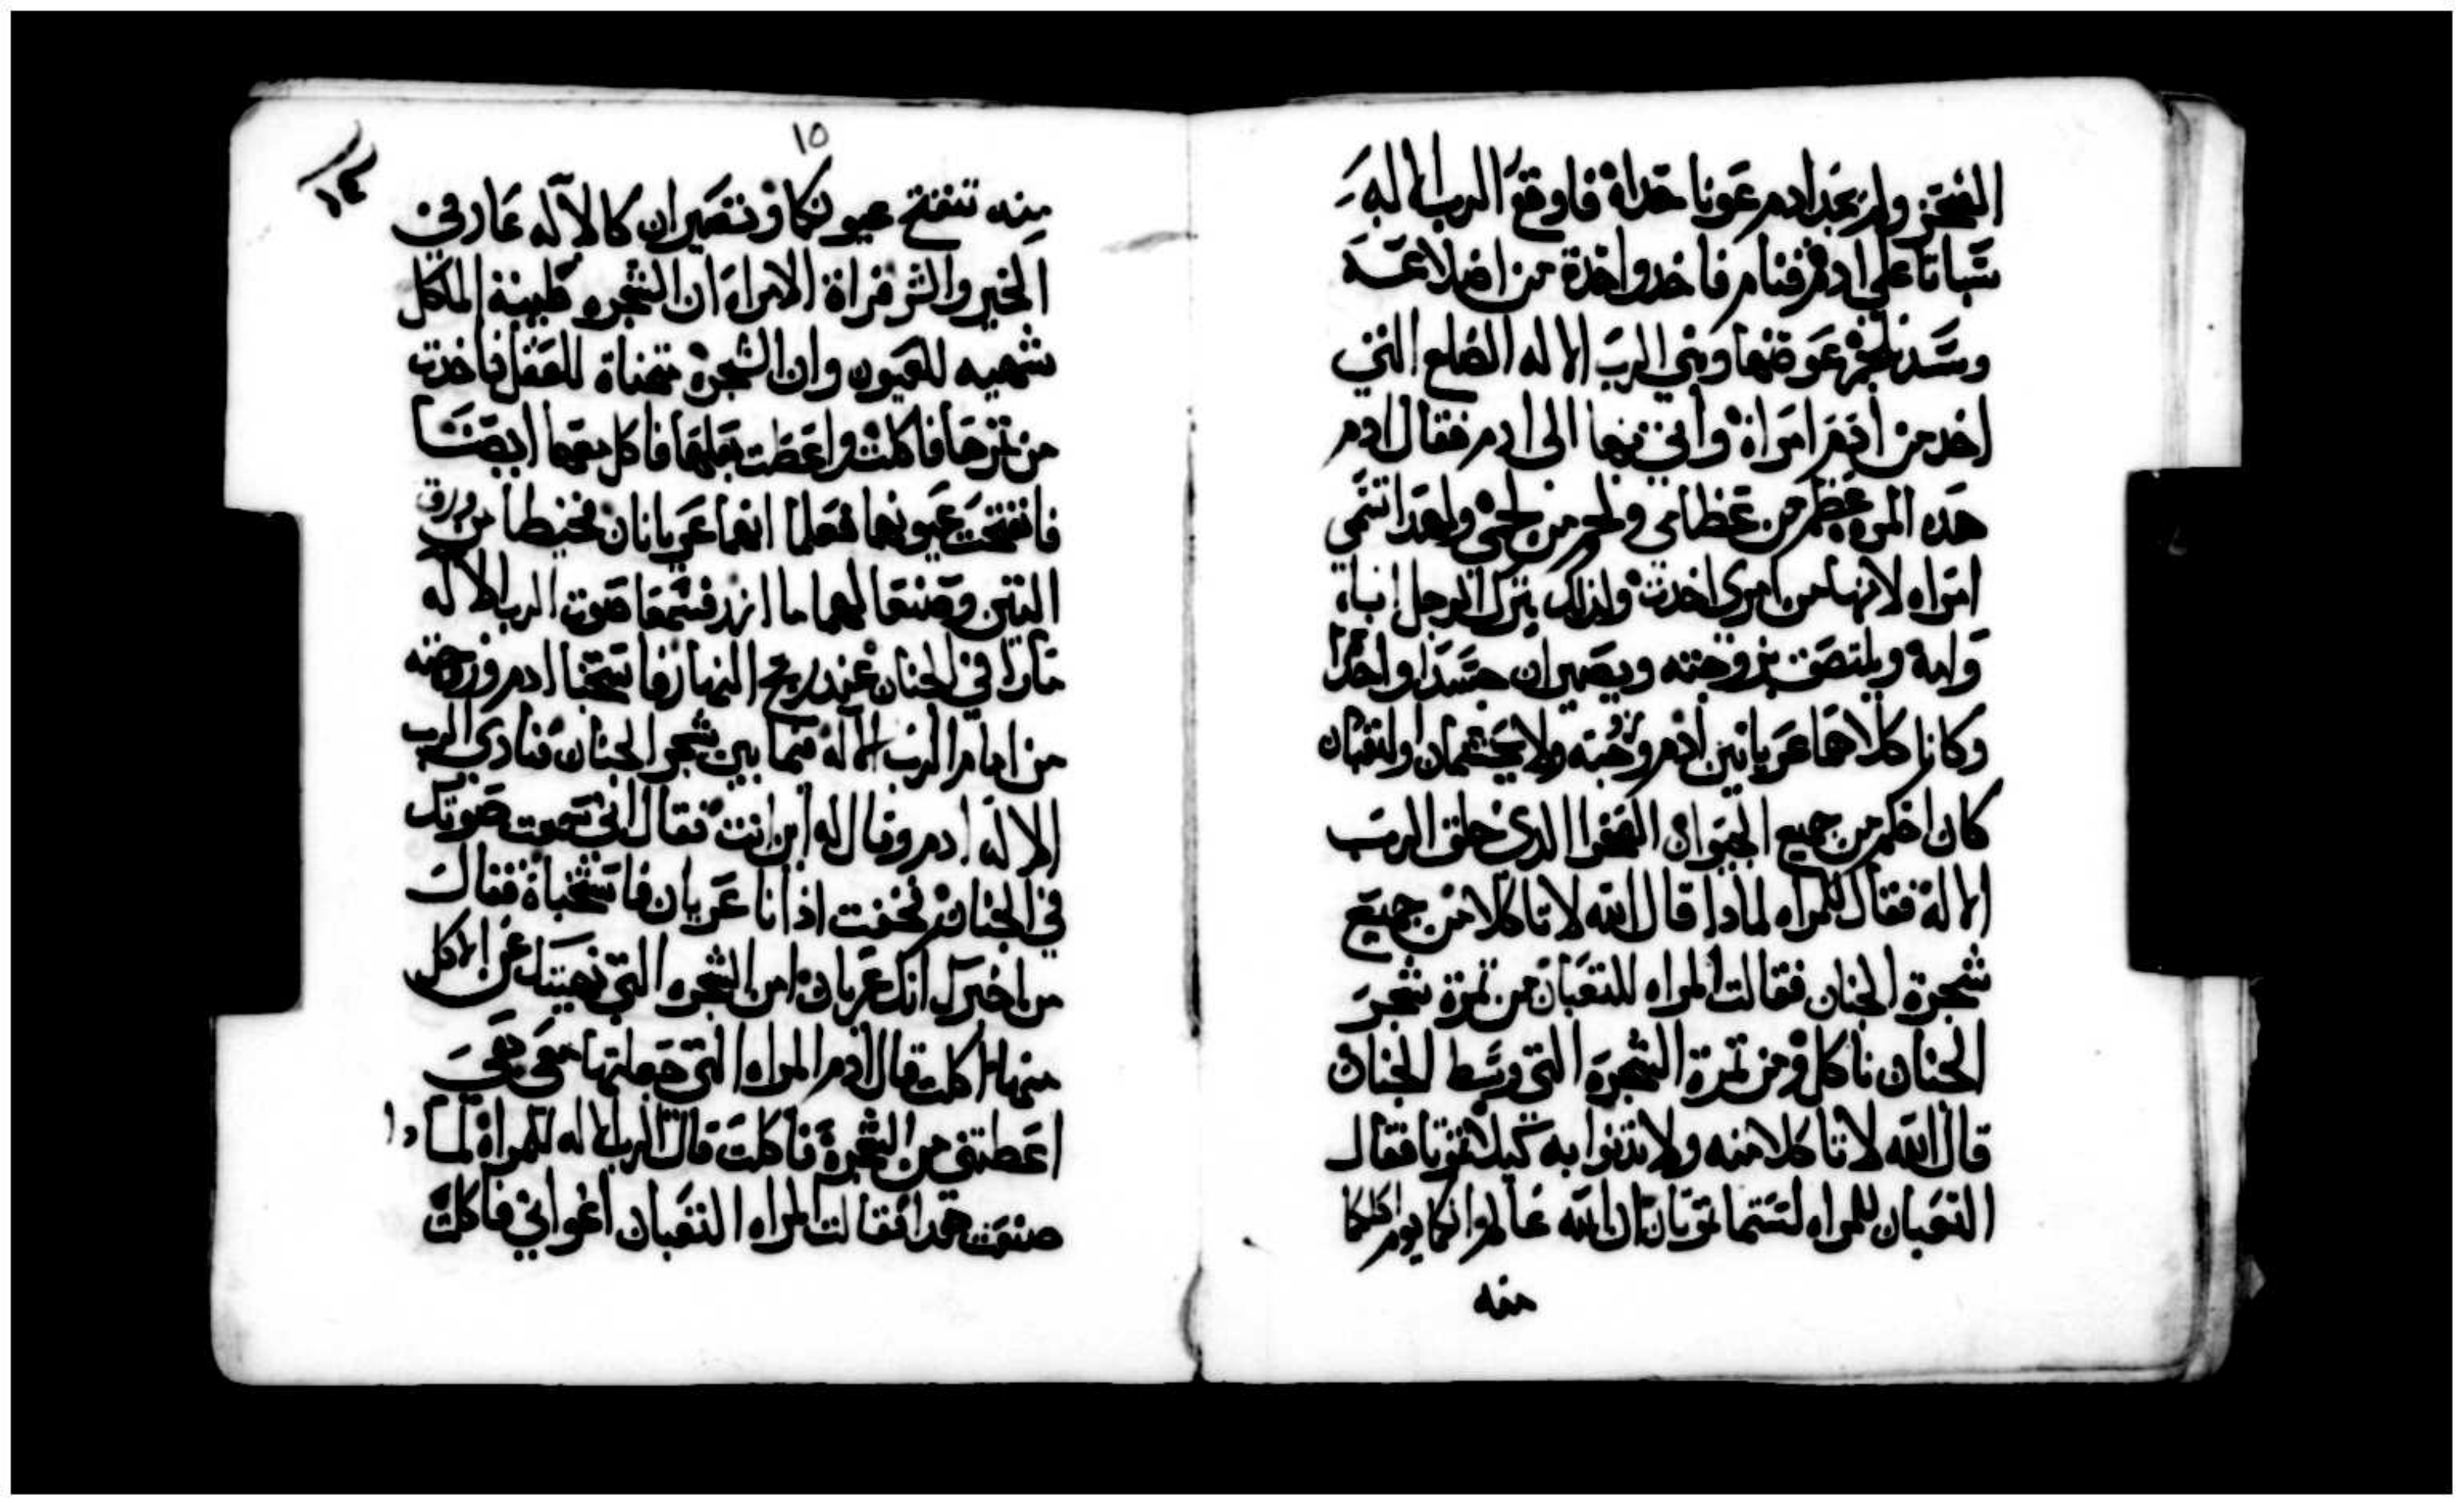 الصحرَ ولم يجد ادم عونا حداه فاوقع الرب الاله
سباتا علي ادم فنام فاخد واحدة من اضلاعه
وسد بلحم عوضها وبني الرب الاله الضلع التي
اخد من ادم امراة واتي بها الى ادم فقال ادم
هده المره عظم من عظامي ولحم من لحمي ولهدا تسمى
امراه لانها من امري اخدت ولدلك يترك الرجل اباه
وامه ويلتصق بزوجته ويصيران جسدا واحدا
وكانا كلاهما عريانين ادم وزوجته ولا يحتشمان والتعبان
كان احكم من جميع الحيوان الصحرا الدي خلق الرب
الاله فقال للمراه لمادا قال الله لا تاكلا من جميع
شجرة الجنان فقالت المراه للتعبان من تمرة شجر
الجنان ناكل ومن تمرة الشجرة التي وسط الجنان
قال الله لا تاكلا منه ولا تدنوا به كيلا تموتا فقال
التعبان للمراه لستما تموتان ان الله عالم انكما يوم اكلكما
منه
١٥
منه تنفتح عيونكما وتصيران كالاله عارفين
الخير والشر فراة الامراه ان الشجره طيبة الماكل
شهيه للعيون وان الشجرة متمناة للعقل فاخدت
من تمرها فاكلت واعطت بعلها فاكل معها ايضا
فانفتحت عيونهما فعلما انهما عريانان فخيطا من ورق
التين وصنعا لهما مازر فسمعا صوت الرب الاله
مارا في الجنان عند ريح النهار فاستخبا ادم وزوجته
من امام الرب الاله فيما بين شجر الجنان فنادى الرب
الاله ادم وقال له اين انت فقال اني سمعت صوتك
في الجنان فخفت اد انا عريان فاستخباة فقال
من اخبرك انك عريان امن الشجره التي نهيتك عن الاكل
منها اكلت قال ادم المراه التي جعلتها معي هي
اعطتني من الشجرة فاكلت قال الرب الاله للمراة لمادا
صنعت هدا فقالت المراه التعبان اغواني فاكلت